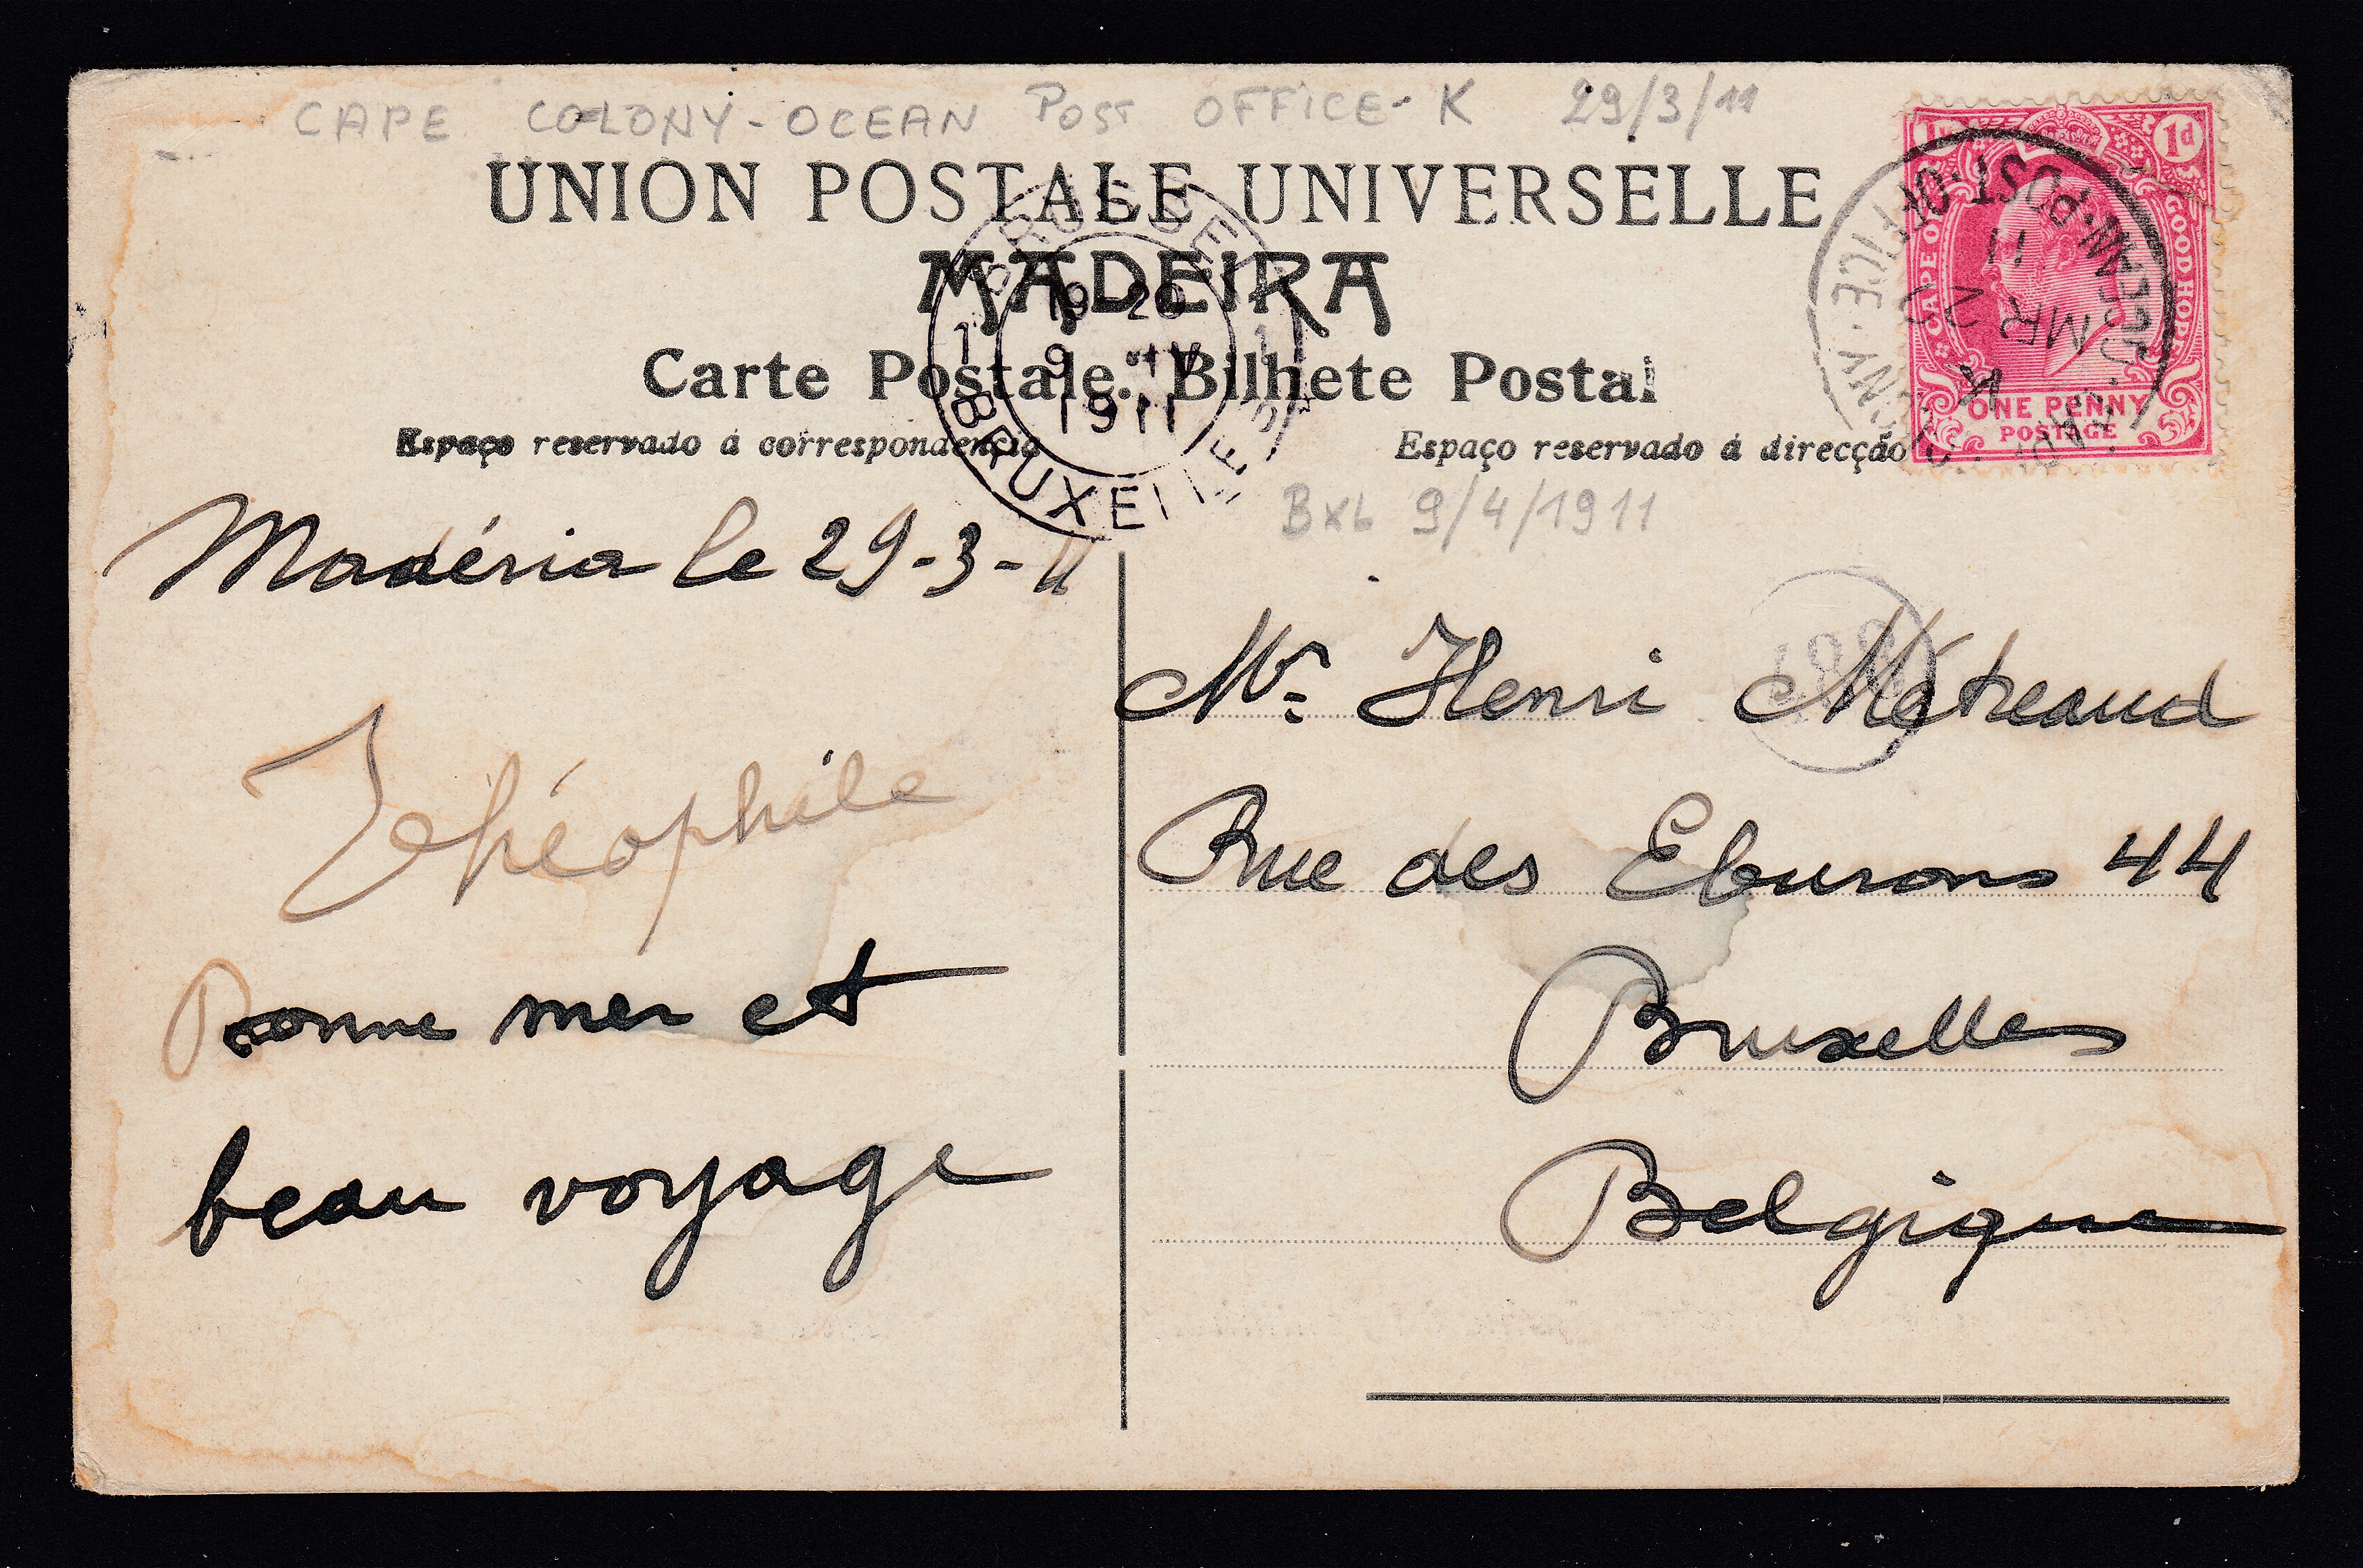 CAPE COLONY - OCEAN POST OFFICE - K 29/3/11
UNION POSTALE UNIVERSELLE
MADEIRA
Carte Postale. Bilhete Postal
Espaço reservado á correspondencia
Espaço reservado á direcção
1d
CAPE OF GOOD HOPE
ONE PENNY
POSTAGE
OCEAN·POST·OFFICE·
K
MR 29
11
BRUSSEL
1 19 20 1
9 IV
1911
BRUXELLES
Bxl 9/4/1911
Madéria le 29-3-11
Théophile
Bonne mer et
beau voyage
Mr. Henri Métreaud
Rue des Eburons 44
Bruxelles
Belgique